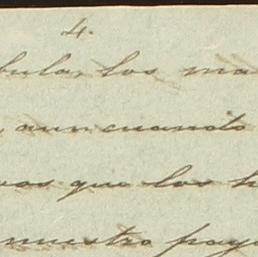 4.
bula, los ma
aun cuando
vas que los h
nuestro pays